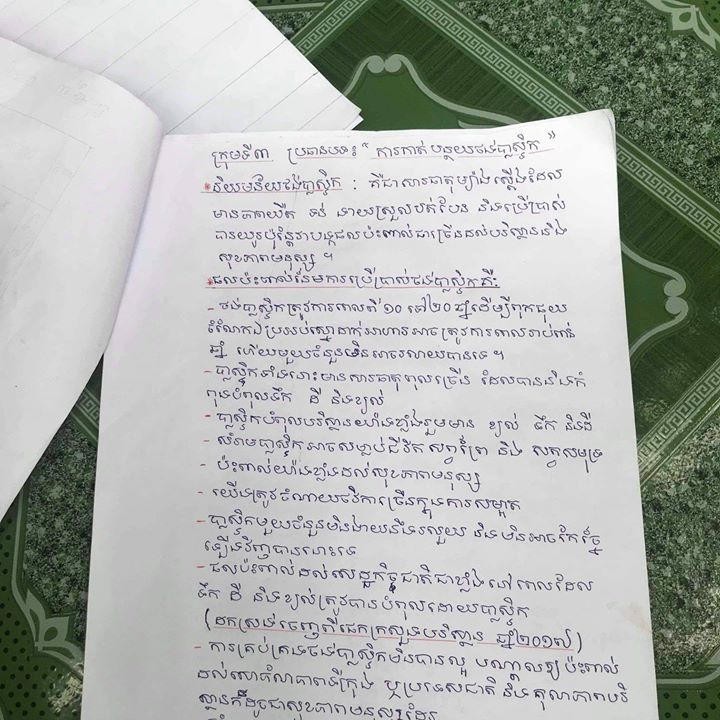 ក្រុមទី៣ ប្រធានបទ៖ “ ការកាត់បន្ថយថង់ប្លាស្ទិក ”
*និយមន័យថង់ប្លាស្ទិក : គឺជាសារធាតុម្យ៉ាងស្តើងដែល
មានភាពយឺត ទន់ ងាយស្រួលបត់បែន និងប្រើប្រាស់
បានយូរប៉ុន្តែវាបង្កផលប៉ះពាល់ជាច្រើនដល់បរិស្ថាននិង
សុខភាពមនុស្ស ។
*ផលប៉ះពាល់នៃការប្រើប្រាស់ថង់ប្លាស្ទិកគឺ:
- ថង់ប្លាស្ទិកត្រូវការពេលពី ១០ ទៅ២០ ឆ្នាំដើម្បីពុកផុយ
ចំណែកឯប្រអប់ស្នោដាក់អាហារអាចត្រូវការពេលរាប់ពាន់
ឆ្នាំ ហើយមួយចំនួនមិនអាចរលាយបានទេ ។
- ប្លាស្ទិកទាំងនោះមានសារធាតុពុលច្រើន ដែលបាននិងកំ
ពុងបំពុលទឹក ដី និងខ្យល់
- ប្លាស្ទិកបំពុលបរិស្ថានយ៉ាងខ្លាំងរួមមាន ខ្យល់ ទឹក និងដី
- សំរាមប្លាស្ទិកអាចសម្លាប់ជីវិត សត្វព្រៃ និង សត្វសមុទ្រ
- ប៉ះពាល់យ៉ាងខ្លាំងដល់សុខភាពមនុស្ស
- យើងត្រូវចំណាយថវិការច្រើនក្នុងការសម្អាត
- ប្លាស្ទិកមួយចំនួនមិនងាយនឹងរលួយ និងមិនអាចកែច្នៃ
ឡើងវិញបាននោះទេ
- ផលប៉ះពាល់ដល់សេដ្ឋកិច្ចជាតិជាខ្លាំង នៅពេលដែល
ទឹក ដី និងខ្យល់ត្រូវបានបំពុលដោយប្លាស្ទិក
(ដកស្រង់ចេញពីផេកក្រសួងបរិស្ថាន ឆ្នាំ២០១៧)
- ការគ្រប់គ្រងថង់ប្លាស្ទិកមិនបានល្អ បណ្តាលឲ្យប៉ះពាល់
ដល់សោភ័ណភាពទីក្រុង ឬប្រទេសជាតិ និងគុណភាពបរិ
ស្ថានក៏ដូចជាសុខភាពមនុស្សដែរ